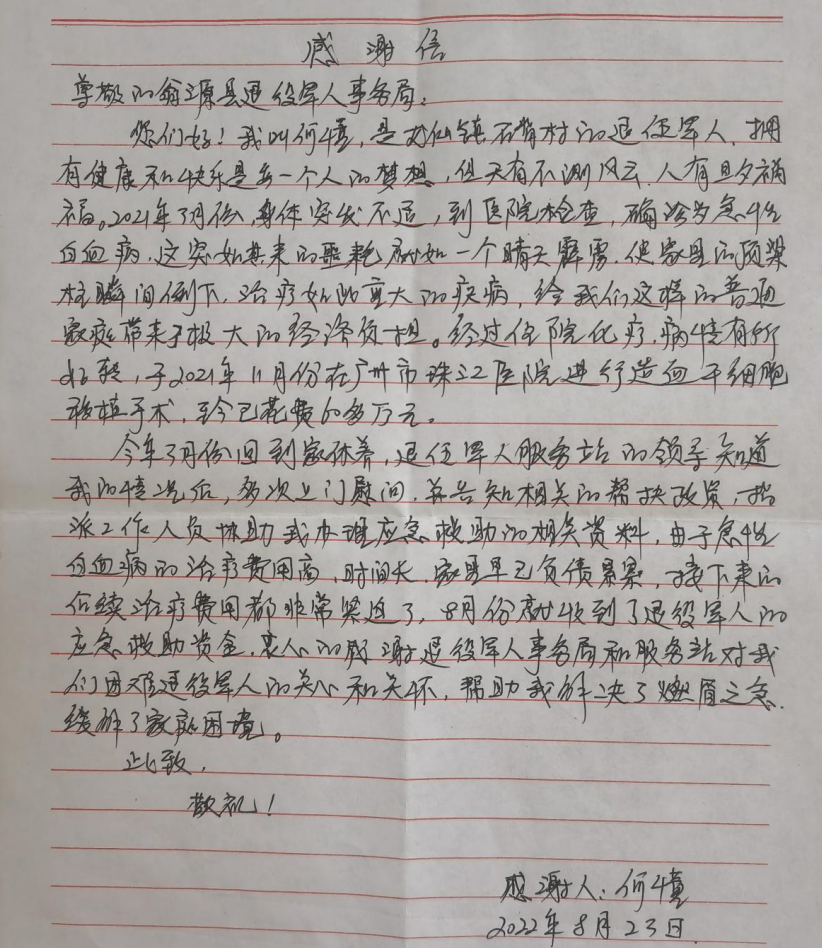 感谢信
尊敬的翁源县退役军人事务局:
您们好!我叫何憧,是龙仙镇石背村的退伍军人,拥
有健康和快乐是每一个人的梦想,但天有不测风云,人有旦夕祸
福。2021年3月份,身体突发不适,到医院检查,确诊为急性
白血病,这突如其来的噩耗就如一个晴天霹雳,使家里的顶梁
柱瞬间倒下,治疗如此重大的疾病,给我们这样的普通
家庭带来了极大的经济负担。经过住院化疗,病情有所
好转,于2021年11月份在广州市珠江医院进行造血干细胞
移植手术,至今已花费60多万元。
今年3月份回到家休养,退伍军人服务站的领导知道
我的情况后,多次上门慰问,并告知相关的帮扶政策,指
派工作人员协助我办理应急救助的相关资料,由于急性
白血病的治疗费用高,时间长,家里早已负债累累,接下来的
后续治疗费用都非常紧迫了,8月份就收到了退役军人的
应急救助资金,衷心的感谢退役军人事务局和服务站对我
们困难退役军人的关心和关怀,帮助我解决了燃眉之急,
缓解了家庭困境。
此致,
敬礼!
感谢人:何憧
2022年8月23日